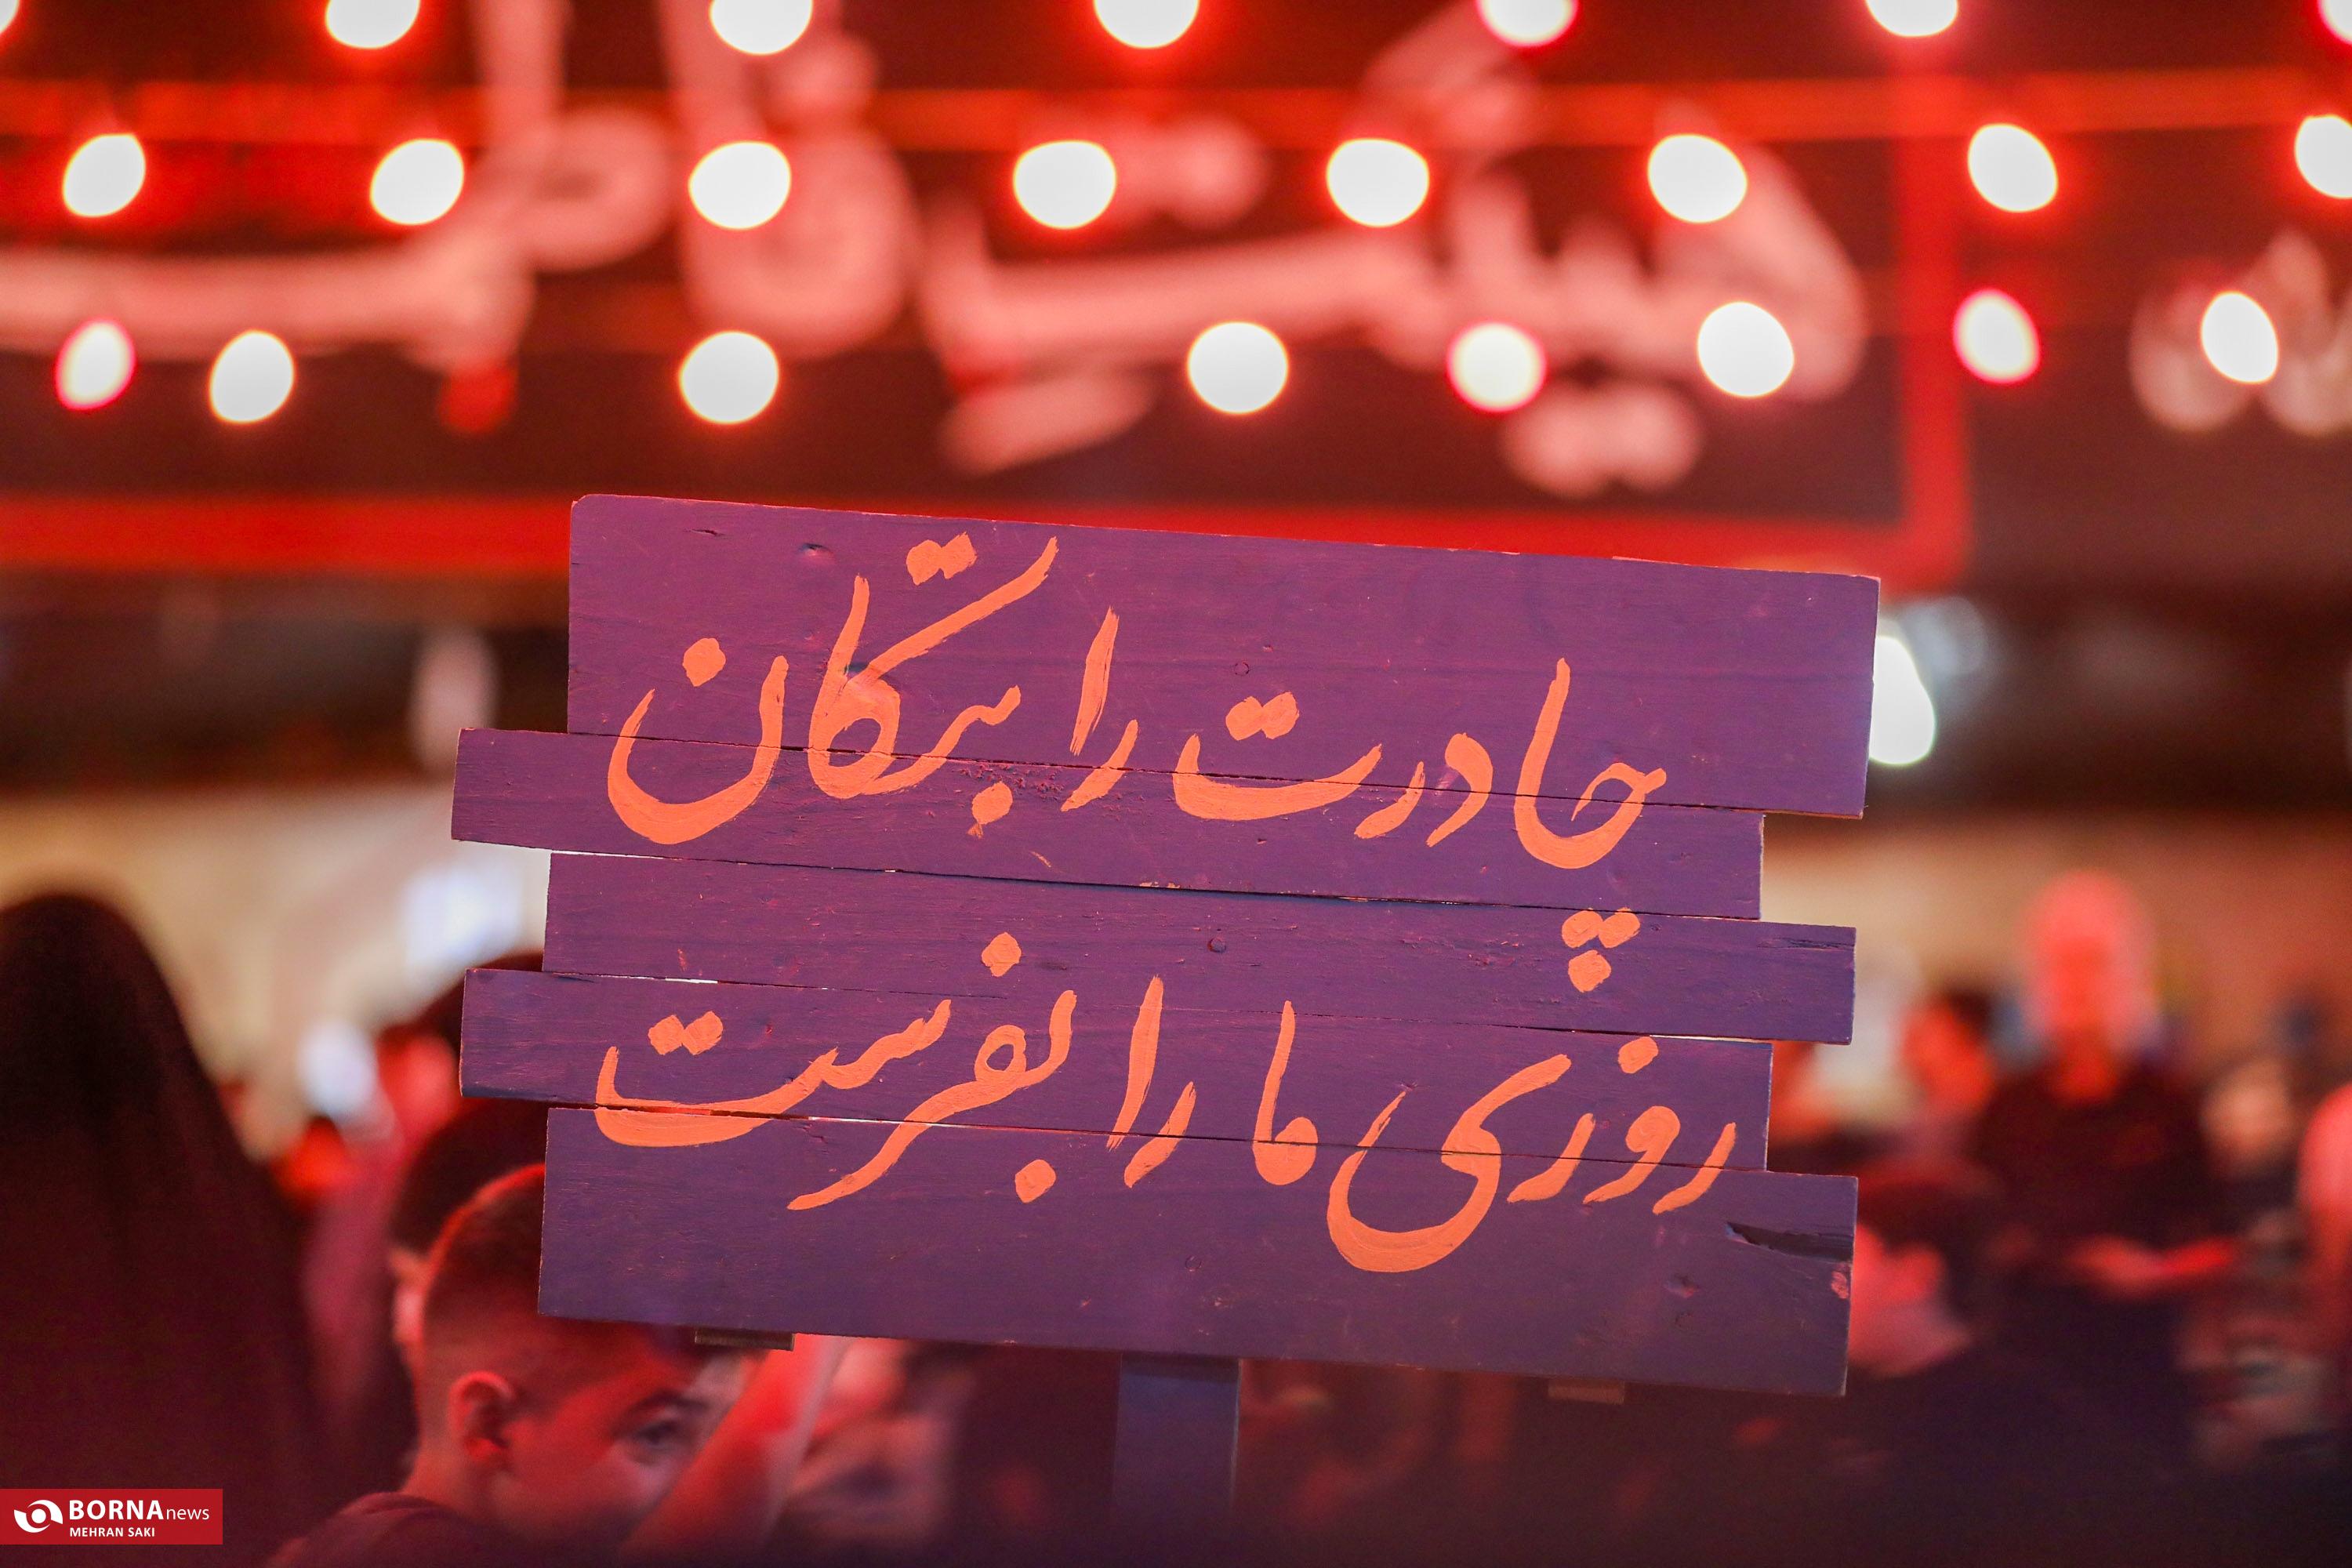 چادرت را بتکان
روزی ما را بفرست
BORNAnews
MEHRAN SAKI